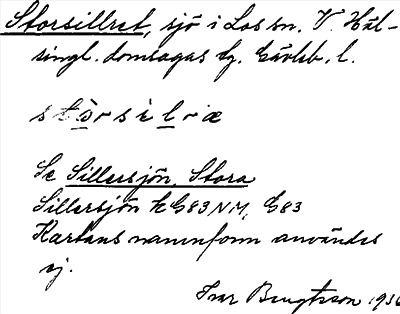 Storsillret, sjö i Los sn. V. Häl-
singl. domsagas tg. Gävleb. l.
stòrsèlræ
Se Sillersjön, Stora
Sillersjön k G83 NM, G83
Kartans namnform användes
ej.
Ivar Bengtsson 1936